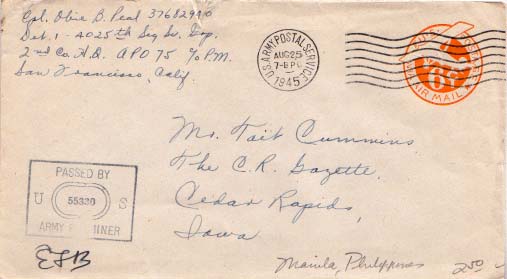 Cpl. Obie B. Peal 37682990
Det. 1 - 4025th Sig. Sv. Grp.
2nd Co. H.Q. APO 75 % P.M.
San Francisco, Calif.
U.S. ARMY POSTAL SERVICE
AUG 25
7-8 PM
1945
VIA AIR MAIL
6¢
Mr. Tait Cummins
The C.R. Gazette,
Cedar Rapids,
Iowa
PASSED BY
U 55330 S
ARMY EXAMINER
Manila, Philippines
250